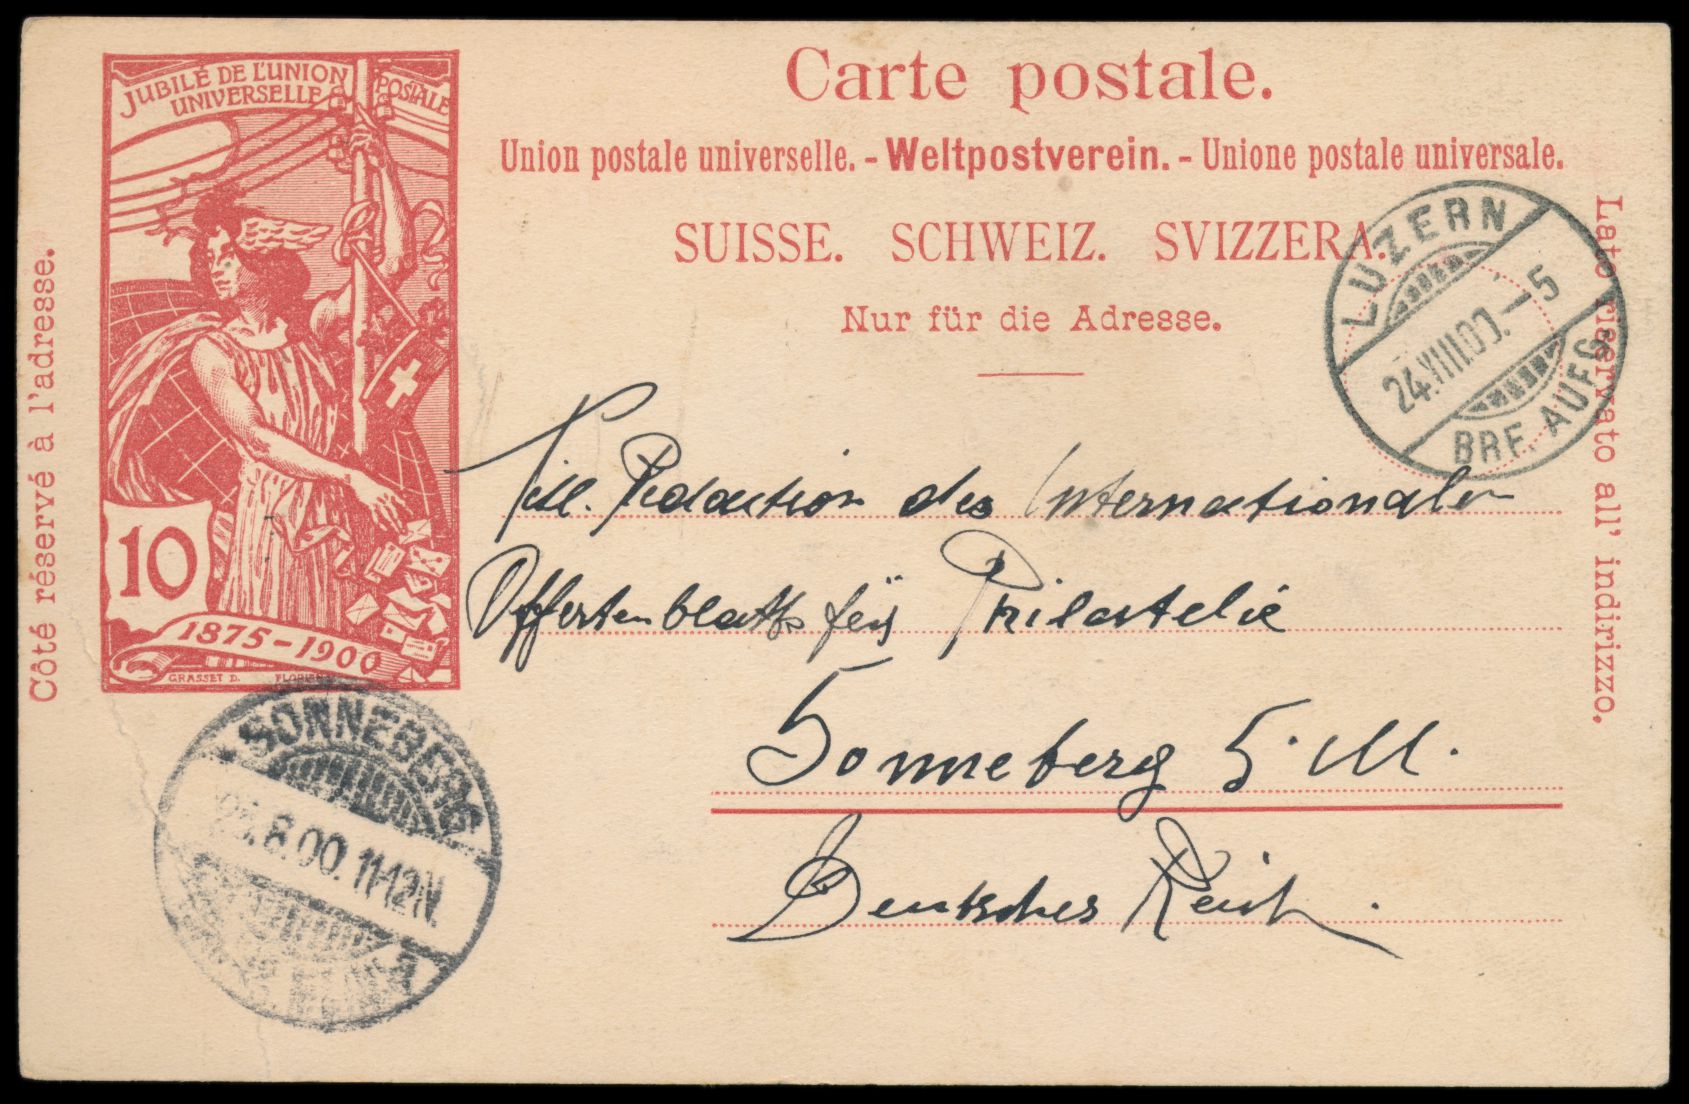 JUBILÉ DE L'UNION POSTALE
UNIVERSELLE
10
1875-1900
GRASSET D. FLORIAN
Carte postale.
Union postale universelle. - Weltpostverein. - Unione postale universale.
SUISSE. SCHWEIZ. SVIZZERA.
Nur für die Adresse.
Côté réservé à l'adresse.
Lato riservato all' indirizzo.
LUZERN
24.VIII.00.-5
BRF. AUFG.
Titl. Redaction des Internationalen
Offertenblatts für Philatelie
Sonneberg S. M.
Deutsches Reich.
SONNEBERG
8.00. 11-12N.